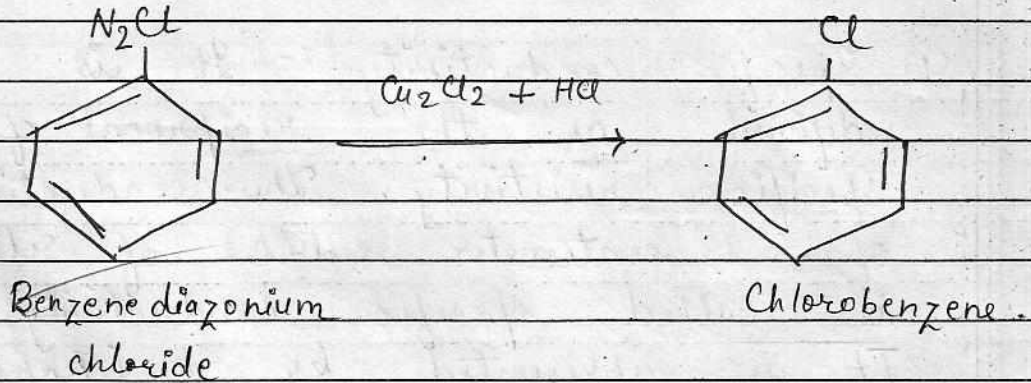 N₂Cl
Cl
Cu₂Cl₂ + HCl
Benzene diazonium
chloride
Chlorobenzene.